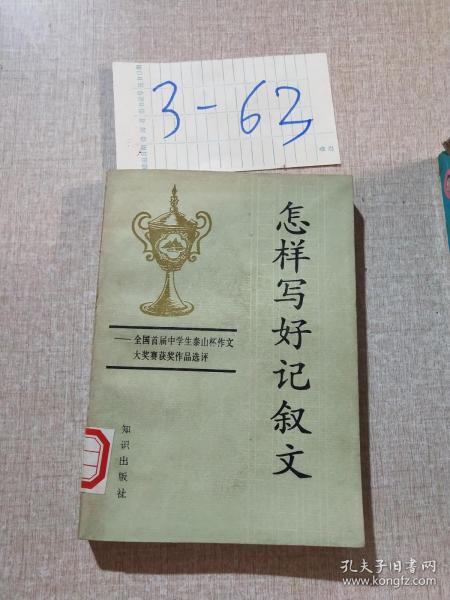 3-63
怎样写好记叙文
——全国首届中学生泰山杯作文
大奖赛获奖作品选评
知识出版社
孔夫子旧书网
www.kongfz.com